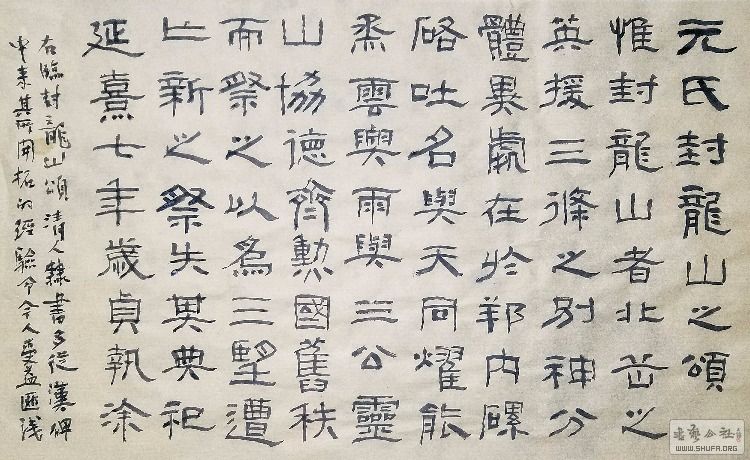 元氏封龍山之頌
惟封龍山者北岳之
英援三條之別神分
體異處在於邦內磥
硌吐名與天同燿能
烝雲興雨與三公靈
山協德齊勳國舊秩
而祭之以為三望遭
亡新之祭失其典祀
延熹七年歲貞執涂
右臨封龍山頌清人隸書多從漢碑
中来其所開拓的經驗今令人受益匪淺
WWW.SHUFA.ORG